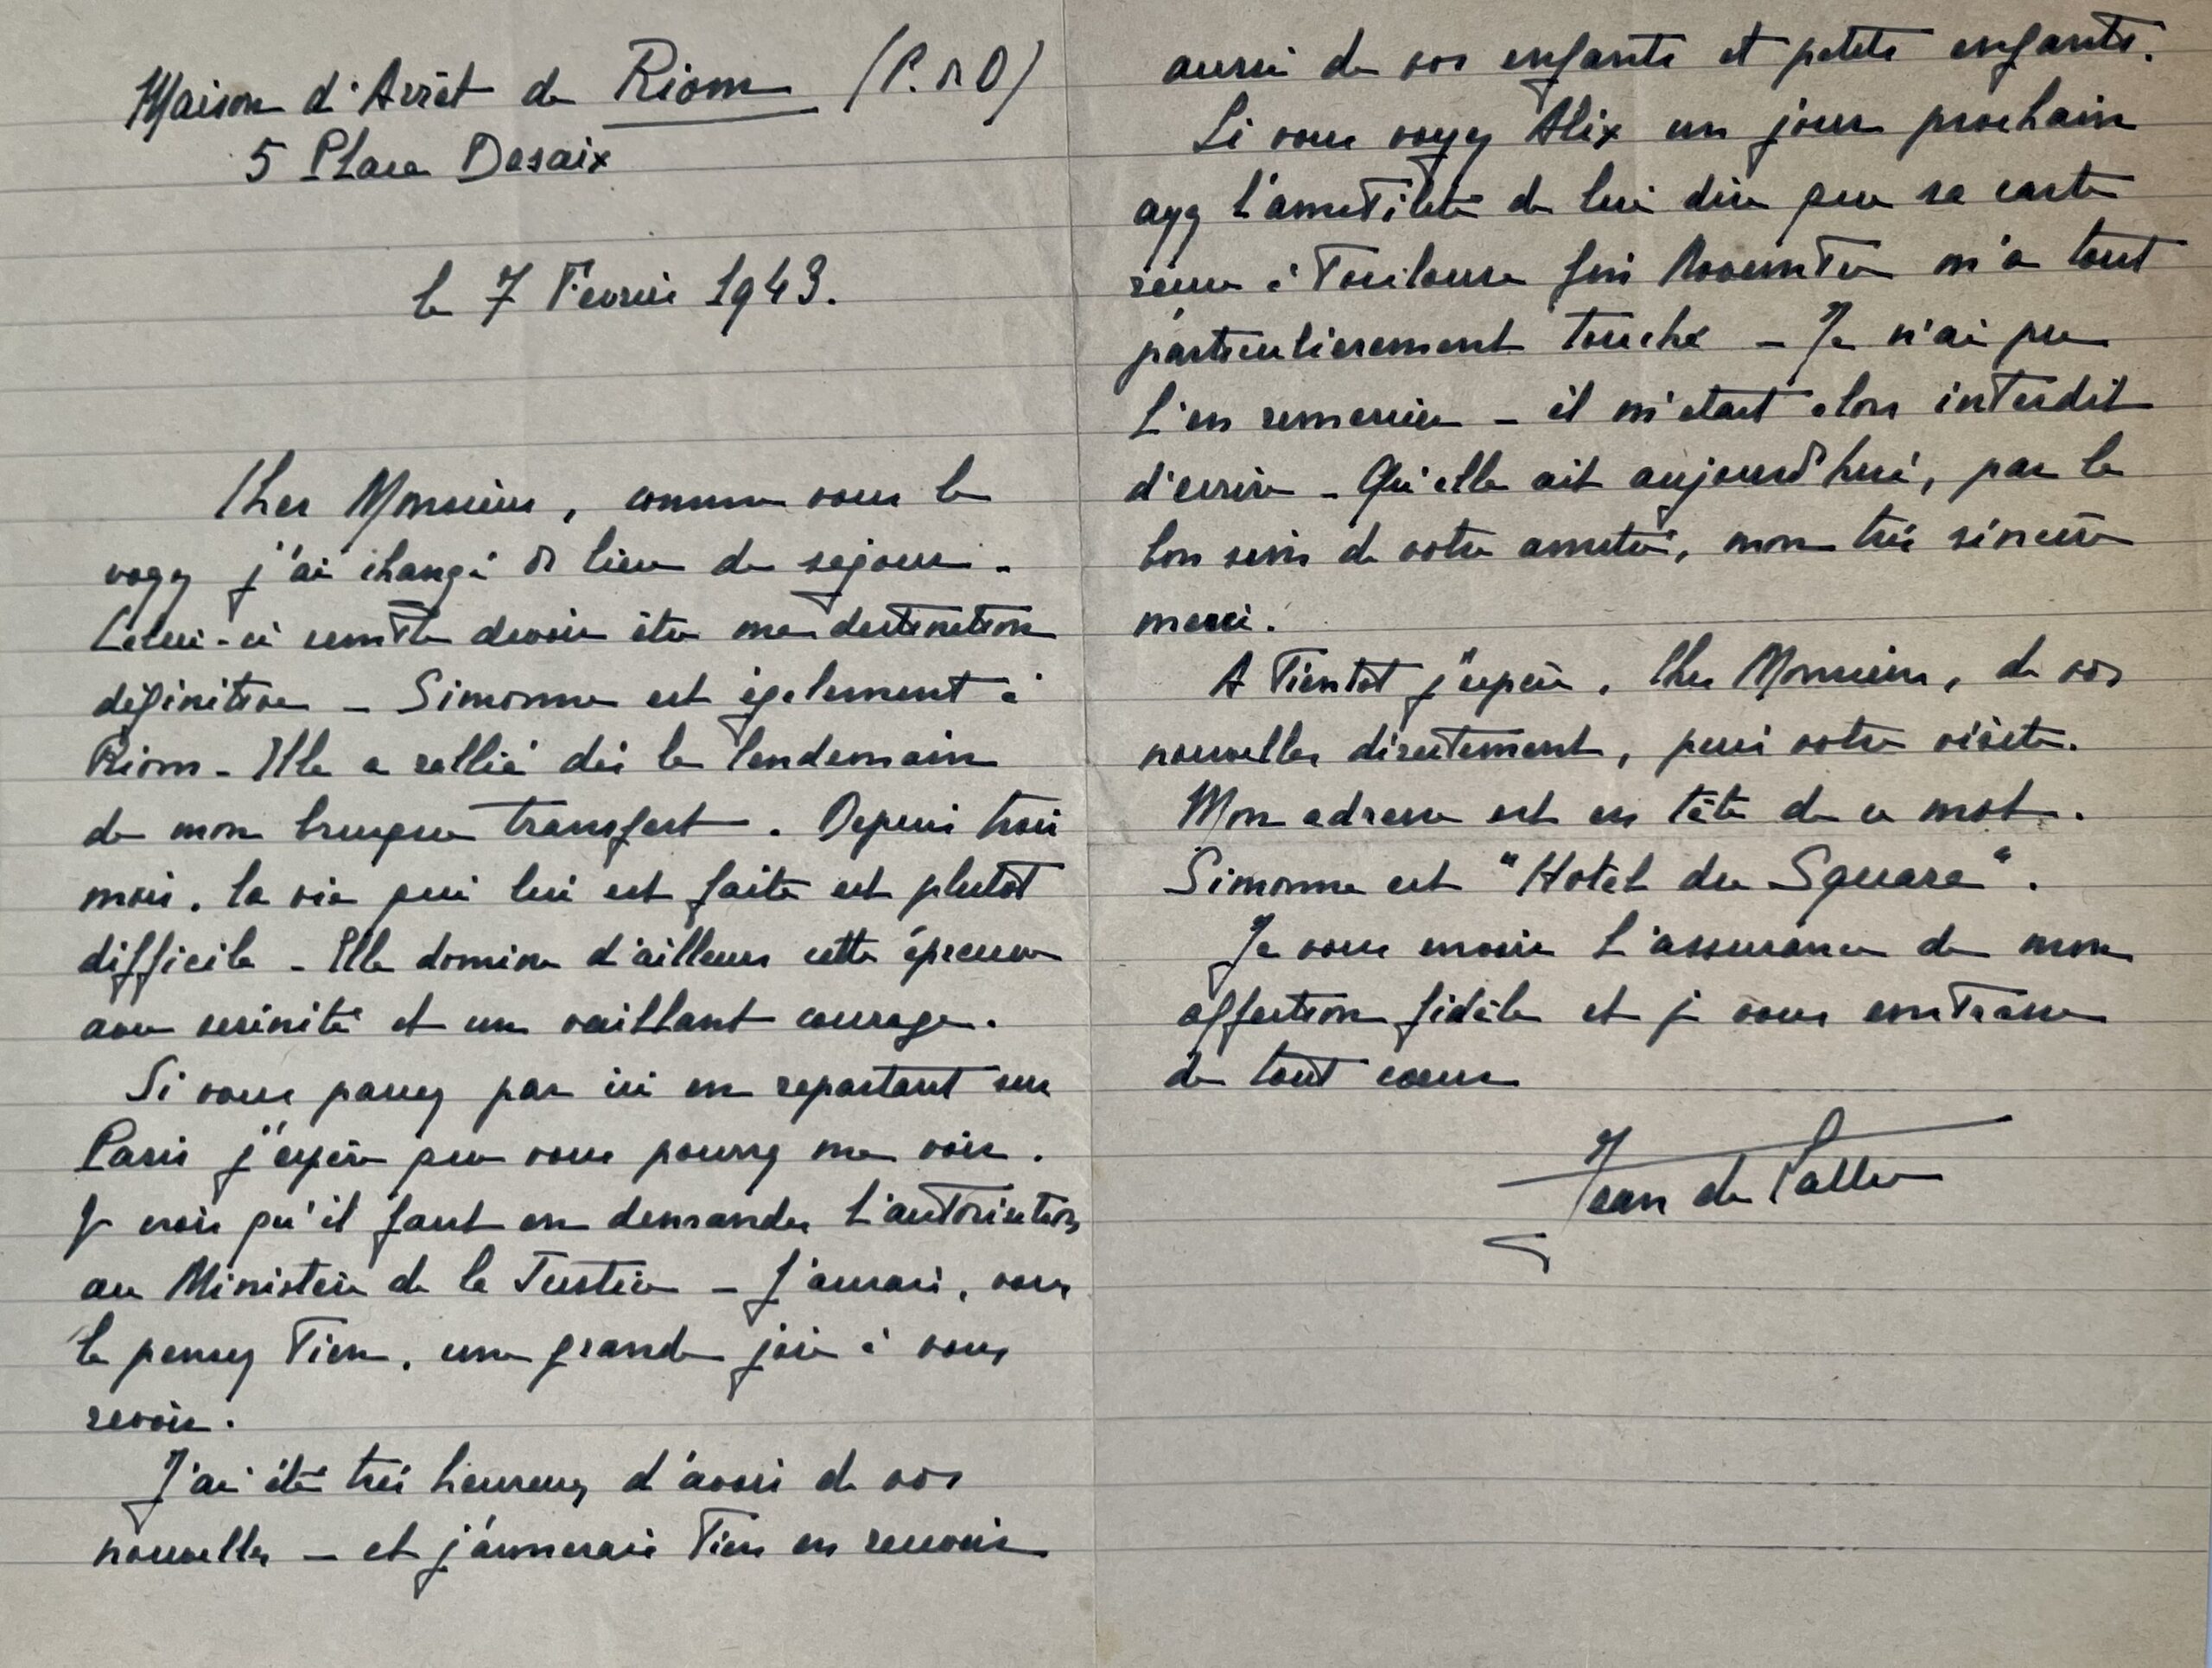 Maison d'Arrêt de Riom (P. de D)
5 Place Desaix
le 7 Fevrier 1943.
Cher Monsieur, comme vous le
voyez j'ai changé de lieu de sejour.
Celui-ci semble devoir être ma destination
définitive - Simonne est également à
Riom - Elle a rallié dès le lendemain
de mon brusque transfert. Depuis trois
mois, la vie qui lui est faite est plutôt
difficile - Elle domine d'ailleurs cette épreuve
avec serénité et un vaillant courage.
Si vous passez par ici en repartant sur
Paris j'espère que vous pourrez me voir.
Je crois qu'il faut en demander l'autorisation
au Ministère de la Justice - J'aurais, vous
le pensez bien, une grande joie à vous
revoir.
J'ai été très heureux d'avoir de vos
nouvelles - et j'aimerais bien en recevoir
aussi de vos enfants et petits enfants.
Si vous voyez Alix un jour prochain
ayez l'amabilité de lui dire que sa carte
reçue à Toulouse fin Novembre m'a tout
particulierement touché - Je n'ai pu
l'en remercier - il m'etait alors interdit
d'ecrire - Qu'elle ait aujourd'hui, par le
bon soin de votre amitié, mon très sincère
merci.
A bientôt j'espère, Cher Monsieur, de vos
nouvelles directement, puis votre visite.
Mon adresse est en tête de ce mot.
Simonne est "Hotel du Square".
Je vous envoie l'assurance de mon
affection fidèle et je vous embrasse
de tout coeur
Jean de